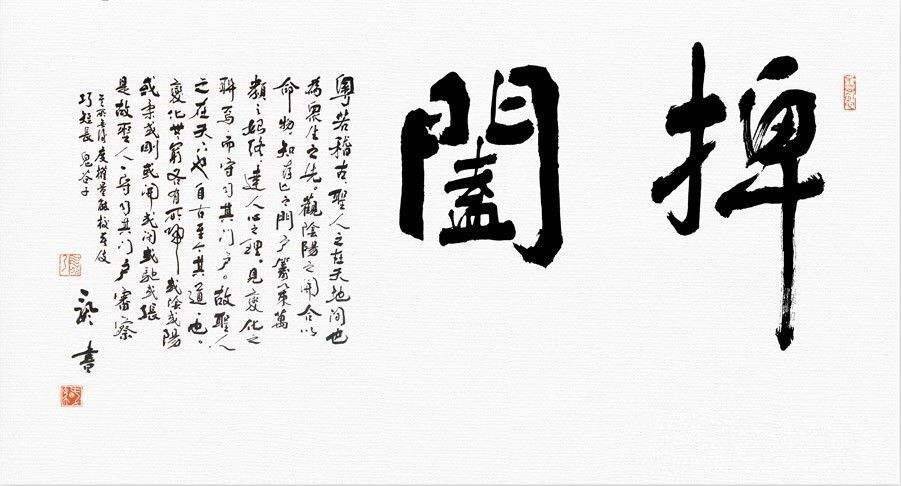 捭闔
粵若稽古聖人之在天地间也
為眾生之先。觀陰陽之開合以
命物知存亡之門户籌策萬
類之始終達人心之理。見變化之
朕焉而守司其門户。故聖人
之在天下也自古至今其道一也。
變化無窮各有所归或陰或陽
或柔或剛或開或闭或弛或張
是故聖人一守司其门户審察
其所先後度權量能校其伎
巧短長 鬼谷子
書